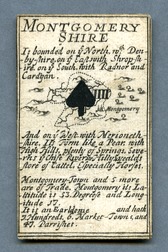 MONTGOMERY
SHIRE
Is bounded on yᵉ North, wᵗʰ Den-
by-shire, on yᵉ East with Shrop-sh
ire, on yᵉ South with Radnor and
Cardgan.
IIII
Montgomery
And on yᵉ West with Merioneth-
shire. Its form like a Pear, with
High Hills, plenty of Springs, Seve-
rn yᵉ Chief River, Hills, yeald
store of Cattel, Especialy Horses.
Montgomery-Town and 5 more
are of Trade. Montgomery its La-
titude is 53 Degrees and Long-
itude 17.
It is an Earldome and hath
Hundreds, 6 Market-Towns, and
47 Parrishes.